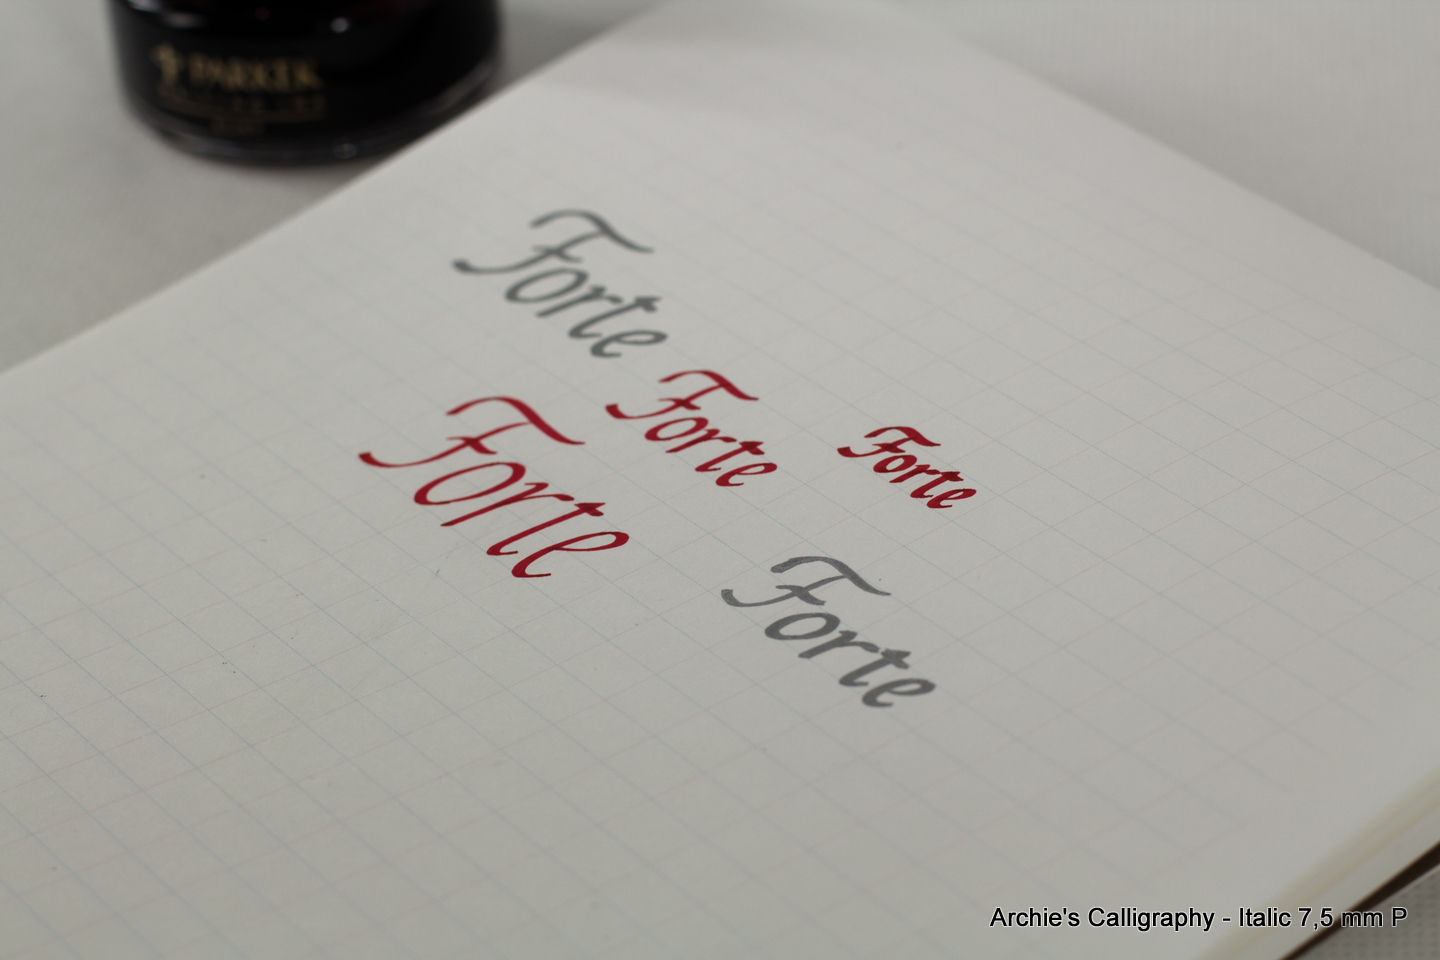 PARKER
Forte
Forte
Forte
Forte
Forte
Archie's Calligraphy - Italic 7,5 mm P